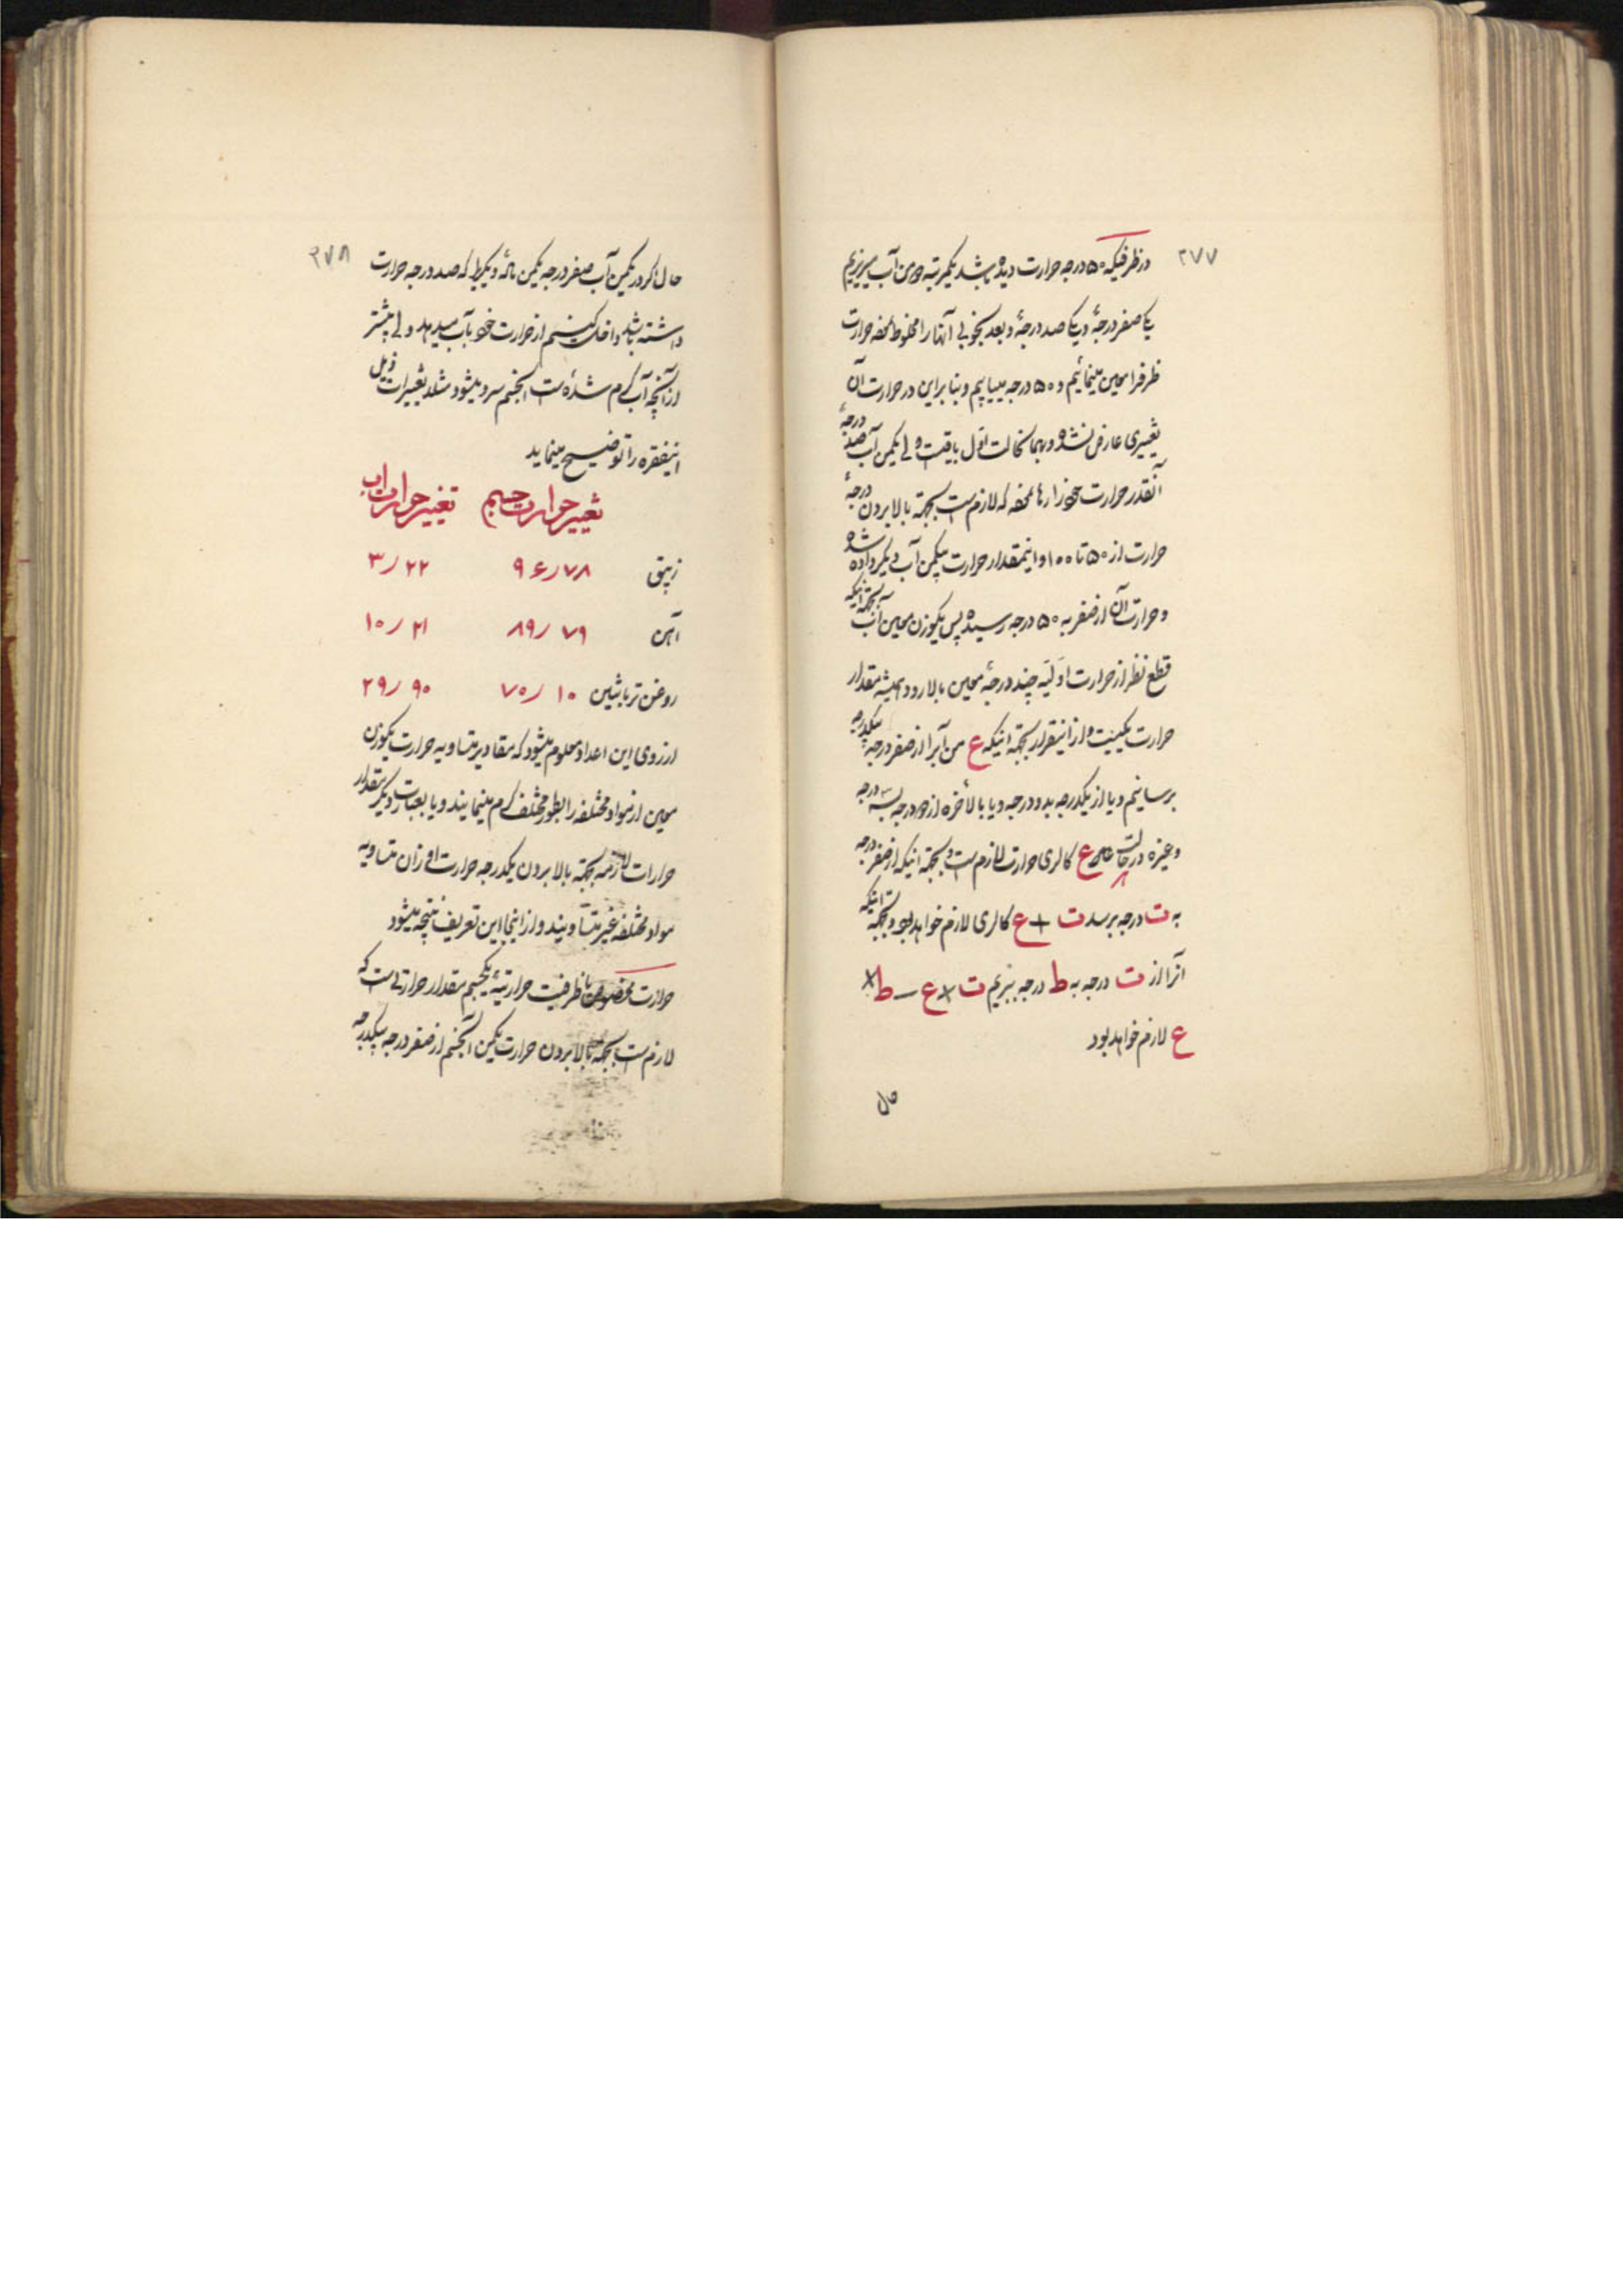 ۲۷۷
در ظرفیکه ۵۰ درجه حرارت دیده باشد یکمرتبه دو من آب میریزیم
یکی صفر درجهٔ و یکی صد درجهٔ و بعد بخوبی آنها را مخلوط نموده حرارت
ظرف را معین مینمائیم و ۵۰ درجه مییابیم و بنابراین در حرارت آن
تغییری عارض نشده و بهمان حالت اول باقیست ولی یکمن آب صد درجهٔ
آنقدر حرارت خود را رها نموده که لازم است بجهة بالا بردن درجهٔ
حرارت از ۵۰ تا ۱۰۰ و اینمقدار حرارت بیکمن آب دیگر داده شده
و حرارت آن از صفر به ۵۰ درجه رسیده پس یکوزن معین آب بجهة اینکه
قطع نظر از حرارت اولیه چند درجهٔ معین بالا رود همیشه مقدار
حرارت یکیست و از اینقرار بجهة اینکه ع من آبرا از صفر درجه بیکدرجه
برسانیم و یا از یکدرجه بدو درجه و یا بالأخره از دو درجه بسه درجه
و غیره در حالت ع کالری حرارت لازم است و بجهة اینکه از صفر درجه
به ت درجه برسد ت + ع کالری لازم خواهد بود و بجهة اینکه
آنرا از ت درجه به ط درجه ببریم ت × ع − ط ×
ع لازم خواهد بود
حال
۲۷۸
حال اگر در یکمن آب صفر درجه یکمن مادّهٔ دیگر را که صد درجه حرارت
داشته باشد داخل کنیم از حرارت خود بآب میدهد ولی بیشتر
از آنچه آب گرم شده است آنجسم سرد میشود مثلا تغییرات ذیل
اینفقره را توضیح مینماید
تغییر حرارت جسم تغییر حرارت اب
زیبق ۹۶/۷۸ ۳/۲۲
آهن ۸۹/۷۹ ۱۰/۲۱
روغن ترباتین ۷۰/۱۰ ۲۹/۹۰
از روی این اعداد معلوم میشود که مقادیر متساویه حرارت یکوزن
معین از مواد مختلفه را بطور مختلف گرم مینمایند و یا بعبارت دیگر مقدار
حرارات لازمه بجهة بالا بردن یکدرجه حرارت اوزان متساویه
مواد مختلفه غیر متساویند و از اینجا این تعریف نتیجه میشود
حرارت مخصوص یا ظرفیت حرارتیهٔ یکجسم مقدار حرارتی است که
لازم است بجهة بالا بردن حرارت یکمن آنجسم از صفر درجه بیکدرجه